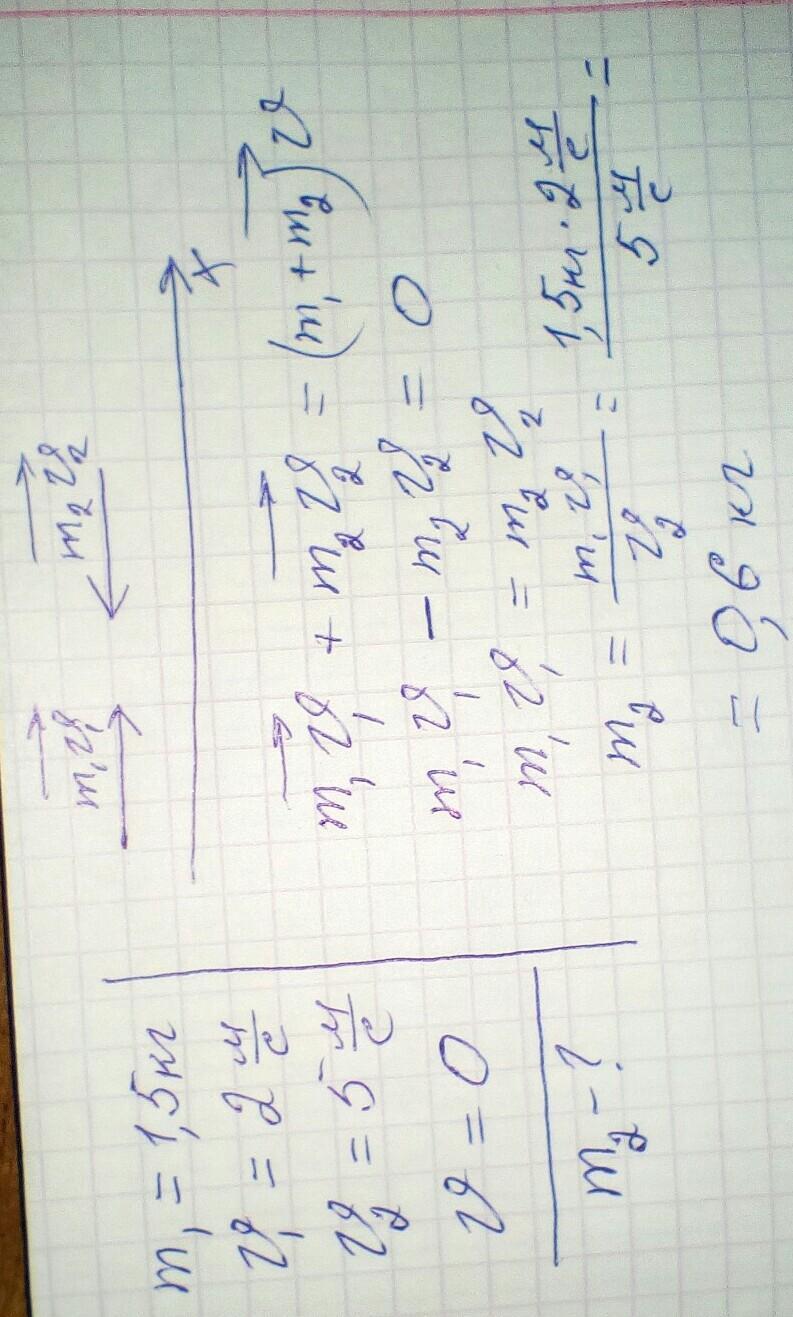 m₁ = 1,5 кг
υ₁ = 2 м/с
υ₂ = 5 м/с
υ = 0
m₂ - ?
m₁υ₁ m₂υ₂
x
m₁υ₁ + m₂υ₂ = (m₁ + m₂)υ
m₁υ₁ - m₂υ₂ = 0
m₁υ₁ = m₂υ₂
m₂ = m₁υ₁/υ₂ = 1,5кг · 2 м/с / 5 м/с =
= 0,6 кг